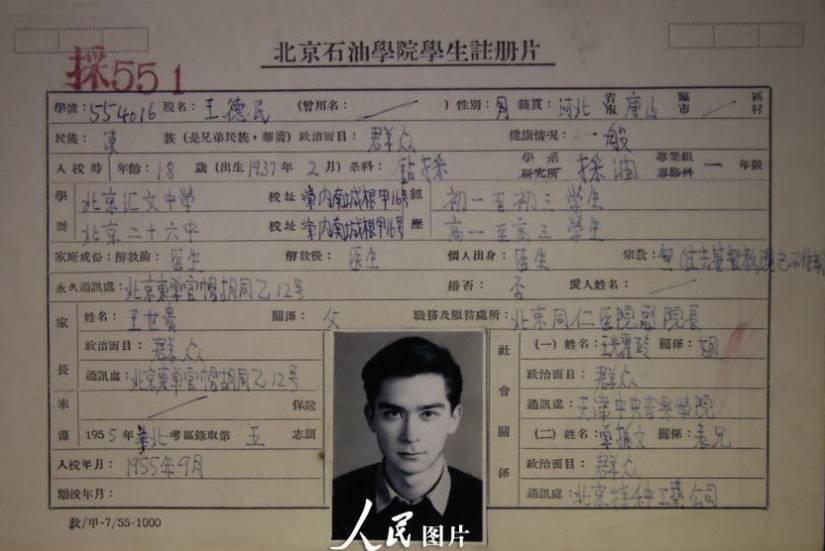 北京石油學院學生註册片
採551
學號：554016 現名：王德民 （曾用名： ） 性別：男 籍貫：河北 省市 唐山 縣市 區村
民族：漢 族（是兄弟民族，華僑）政治面目：群众 健康情况：一般
入校時 年齡：18 歲（出生1937年 2月）系科：鈷採 學系研究所 採油 專業組專修科 一 年級
學 北京汇文中学 校址 崇内南城根甲16号 經 初一至初三 学生
歷 北京二十六中 校址 崇内南城根甲16号 歷 高一至高三 学生
家庭成份：解放前：医生 解放後：医生 個人出身：医生 宗敎：無
永久通訊處：北京東單官帽胡同乙12号 婚否：否 愛人姓名：
家 姓名：王世貴 關係：父 職務及服務處所：北京同仁医院副院長
政治面目：群众
長 通訊處：北京東單官帽胡同乙12号
社會關係
（一）姓名： 關係：姐
政治面目：群众
通訊處：天津中央音乐学院
來源 保送
1955年 华北考區錄取第 五 志願
（二）姓名：單振文 關係：表兄
入校年月：1955年9月
政治面目：群众
離校年月：
通訊處：北京特种工藝公司
敎/甲-7/55-1000
人民图片